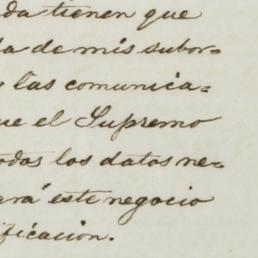 da tienen que
ia de mis subor=
las comunica=
ue el Supremo
odos los datos ne=
ará este negocio
ificación.